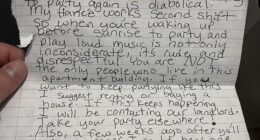 to party again is diabolical.
My fiance works second shift
so when you're waking up
before sunrise to party and
play loud music is not only
inconsiderate, it's rude and
disrespectful. You are NOT
the only people who live in this
apartment building. If you
want to keep partying like this
I suggest renting or buying a
house. If this keeps happening
I will be contacting our landlord.
Take your party elsewhere.
Also, a few weeks ago after y'all